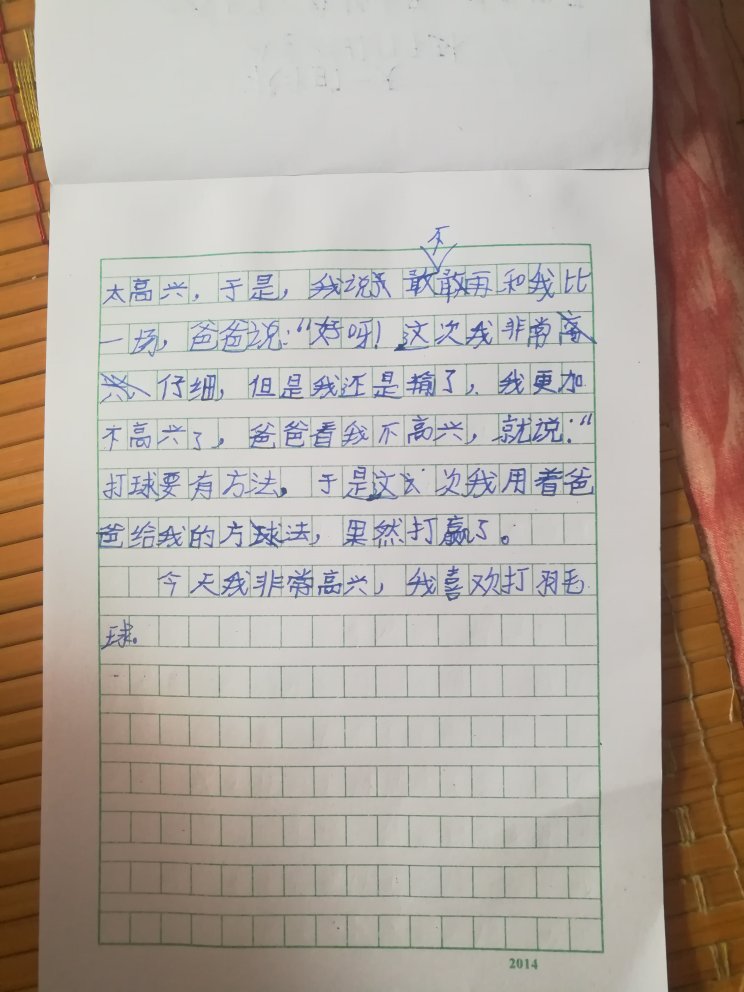 不
太高兴，于是，我说敢敢再和我比
一场，爸爸说：“好呀！这次我非常
仔细，但是我还是输了，我更加
不高兴了，爸爸看我不高兴，就说：“
打球要有方法，于是这次我用着爸
爸给我的方法，果然打赢了。
今天我非常高兴，我喜欢打羽毛
球。
2014